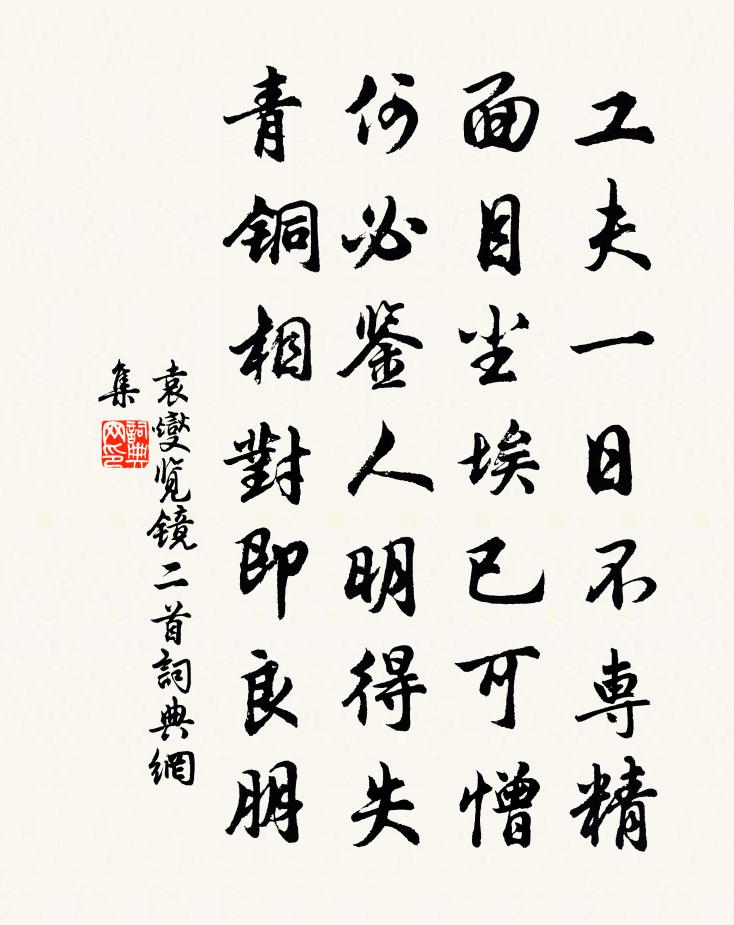 工夫一日不専精
面目尘埃已可憎
何必鉴人明得失
青銅相對即良朋
袁燮览鏡二首詞典網
集
詞典
网印